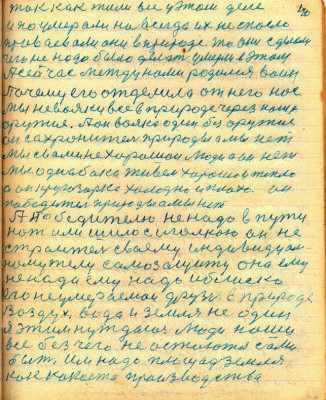 так как тили все у этом деле
и по умерали на всегда их не спасло
провоевали они в природе то они сделали
чего не надо было делат умерли в этом
А сейчас между нами родился воин
Почему его отделила от него нас
мы не вояки все в природе через наше
оружие. А он вояка один без оружия
он сахронител природы а мы нет
мы с вами не хорошии люди а он нет
мы однобока живем хорошо и тепло
а он кругозарка холодно и плохо. он
победител природы а мы нет
А Победителю не надо в пути
нот или шило с иголкою он не
строител своему индивидуал-
ному телу самозащиту она ему
не нада ему надо
его не умераемое друзи в природе
воздух, вода и земля не один
я этим нуждаюс люди
все без чего не осталося
быт. Им надо площад земля
как какоето производства